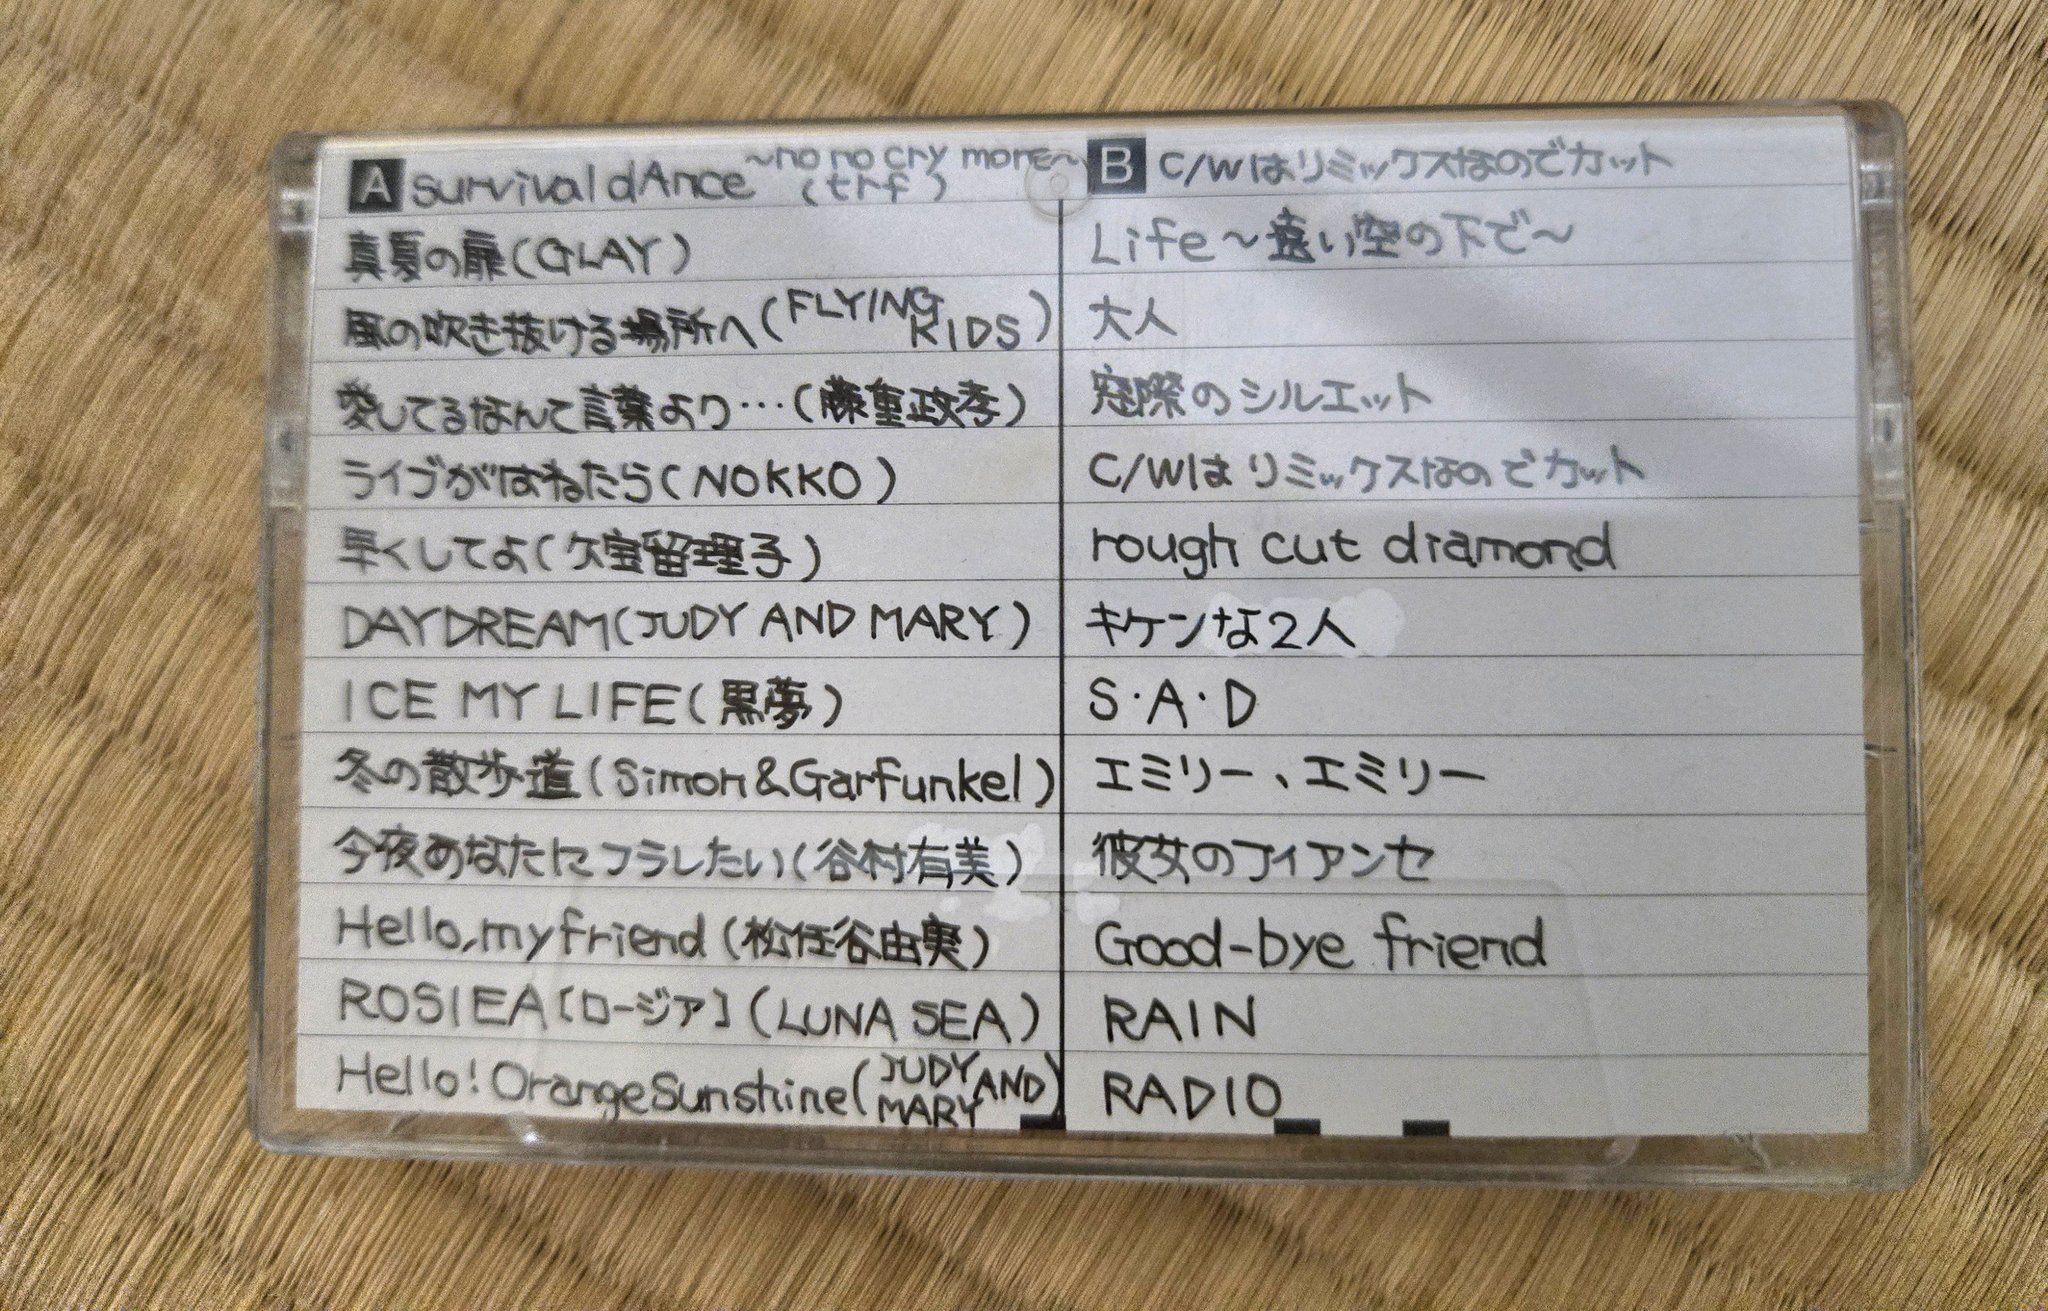 A survival dAnce ~no no cry more~ (trf)
真夏の扉(GLAY)
風の吹き抜ける場所へ(FLYING KIDS)
愛してるなんて言葉より…(藤重政孝)
ライブがはねたら(NOKKO)
早くしてよ(久宝留理子)
DAYDREAM(JUDY AND MARY)
ICE MY LIFE(黒夢)
冬の散歩道(Simon&Garfunkel)
今夜あなたにフラレたい(谷村有美)
Hello, my friend(松任谷由実)
ROSIEA[ロージア](LUNA SEA)
Hello! Orange Sunshine(JUDY AND MARY)
B C/Wはリミックスなのでカット
Life～遠い空の下で～
大人
窓際のシルエット
C/Wはリミックスなのでカット
rough cut diamond
キケンな2人
S・A・D
エミリー、エミリー
彼女のフィアンセ
Good-bye friend
RAIN
RADIO